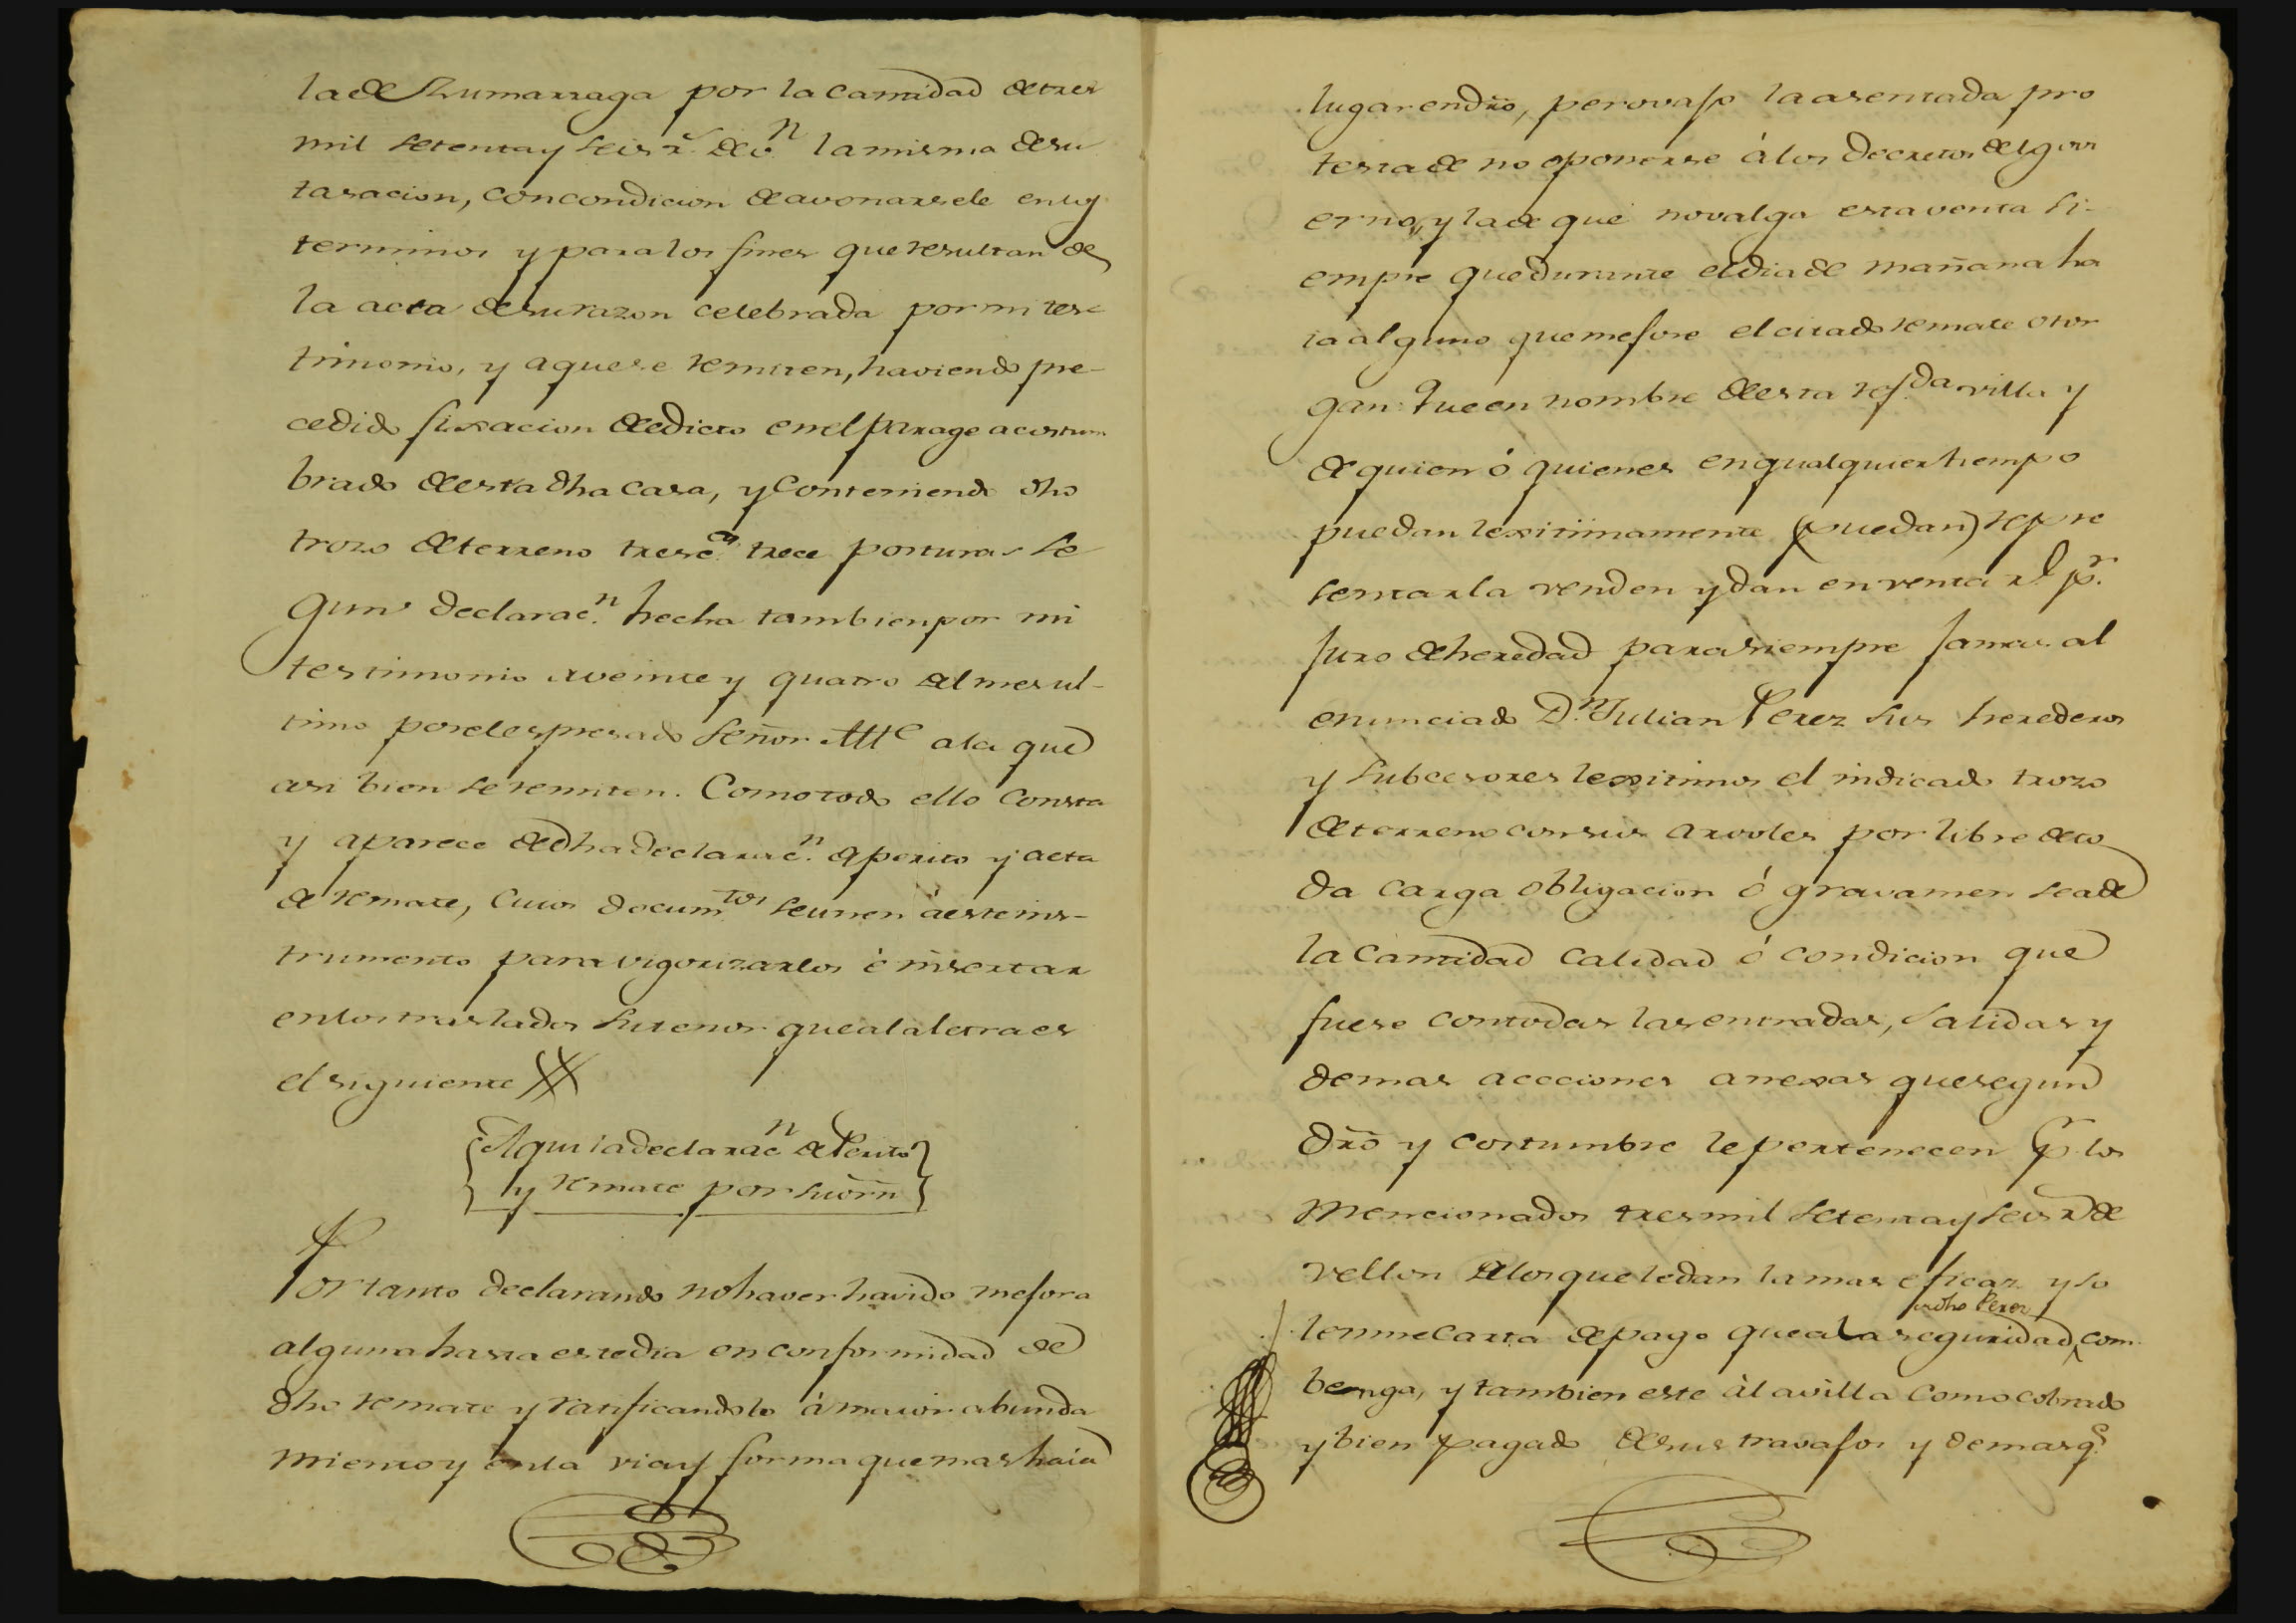 la de Zumarraga por la cantidad de tres
mil setenta y seis r.s de v.n la misma de su
tasacion, con condicion de avonarsele en los
terminos y para los fines que resultan de
la acta de su razon celebrada por mi tes-
timonio, y a que se remiten, haviendo pre-
cedido fixacion de edicto en el parage acostum
brado de esta dha casa, y conteniendo dho
trozo de terreno tresc.as trece posturas se
gun declarac.n hecha tambien por mi
testimonio a veinte y quatro del mes ul-
timo por el espresado Señor Alc.e a la que
asi bien se remiten. Como todo ello consta
y aparece de dha declarac.n de perito y acta
de remate, cuios docum.tos se unen á este ins-
trumento para vigorizarlos é insertar
en los traslados su tenor que a la letra es
el siguiente
Aqui la declarac.n de Perito
y remate por su orn
Por tanto declarando no haver havido mejora
alguna hasta este dia en conformidad de
dho remate y ratificandolo á maior abunda
miento y en la via y forma que mas haia
lugar en dro, pero vajo la asentada pro
testa de no oponerse á los decretos del govi
erno, y la de que no valga esta venta si-
empre que durante el dia de mañana ha
ia alguno que mejore el citado remate otor
gan: Que en nombre de esta ref.da villa y
de quien ó quienes en qualquier tiempo
puedan lexitimamente (puedan) repre
sentarla venden y dan en venta r.l p.r
juro de heredad para siempre jamas al
enunciado D.n Julian Perez sus herederos
y subcesores lexitimos el indicado trozo
de terreno con sus arvoles por libre de to
da carga obligacion ó gravamen sea de
la cantidad calidad ó condicion que
fuese con todas las entradas, salidas y
demas acciones anexas que segun
dro y costumbre le pertenecen p.r los
mencionados tres mil setenta y seis r.s de
vellon de los que le dan la mas eficaz y so
a dho Perez
lemne carta de pago que a la seguridad com
benga, y tambien este á la villa como cobrado
y bien pagado de sus travajos y demas q.e